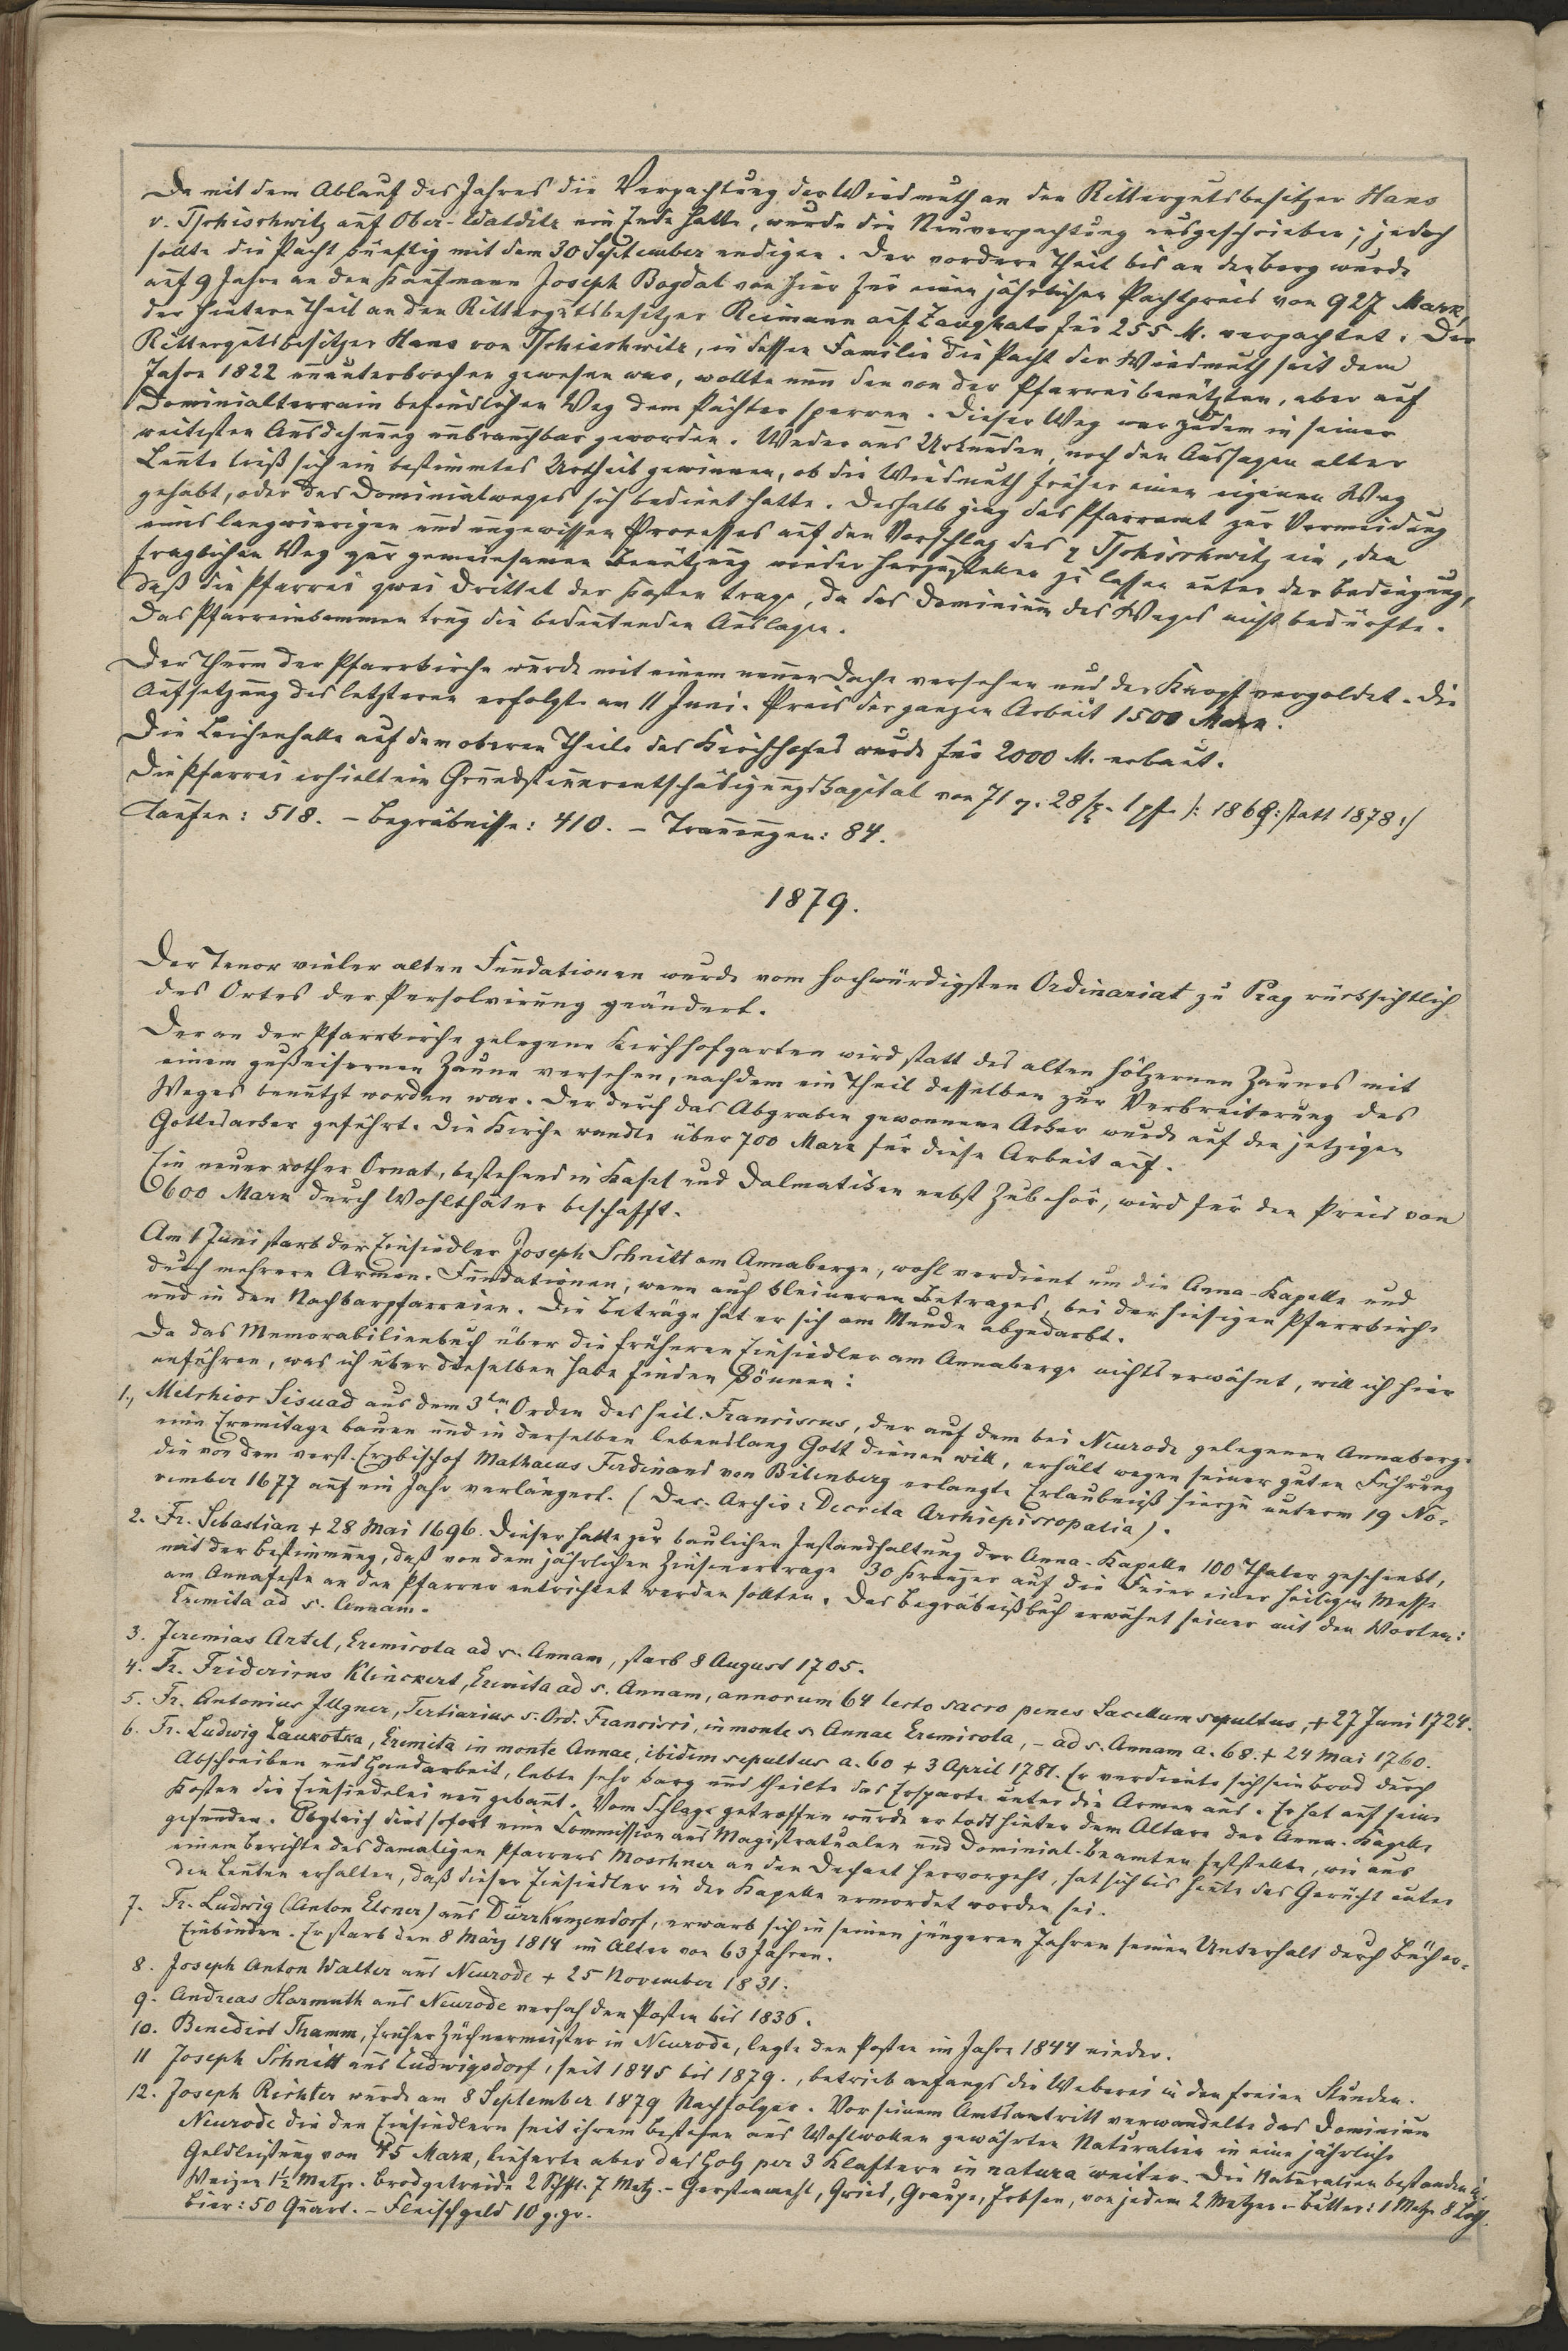 Da mit dem Ablauf des Jahres die Verpachtung der Wiedmuth an den Rittergutsbesitzer Hans
v. Tschischwitz auf Ober-Walditz ein Ende hatte, wurde die Neuverpachtung ausgeschrieben; jedoch
sollte die Pacht künftig mit dem 30 September endigen. Der vordere Theil bis an den Berg wurde
auf 9 Jahre an den Kaufmann Joseph Bogdal von hier für einen jährlichen Pachtpreis von 927 Mark,
der hintere Theil an den Rittergutsbesitzer Reimann auf Zaughals für 255 M. verpachtet. Der
Rittergutsbesitzer Hans von Tschischwitz, in dessen Familie die Pacht der Wiedmuth seit dem
Jahre 1822 ununterbrochen gewesen war, wollte nun den von der Pfarrei benützten, aber auf
Dominialterrain befindlichen Weg dem Pächter sperren. Dieser Weg war zudem in seiner
weitesten Ausdehnung unbrauchbar geworden. Weder aus Urkunden, noch den Aussagen alter
Leute ließ sich ein bestimmtes Urtheil gewinnen, ob die Wiedmuth früher einen eigenen Weg
gehabt, oder des Dominialweges sich bedient hatte. Deshalb ging das Pfarramt zur Vermeidung
eines langwierigen und ungewissen Processes auf den Vorschlag des v Tschischwitz ein, den
fraglichen Weg zur gemeinsamen Benützung wieder herzustellen zu lassen unter der Bedingung,
daß die Pfarrei zwei Drittel der Kosten trage, da das Dominium des Weges nicht bedürfte.
Das Pfarreinkommen trug die bedeutenden Auslagen.
Der Thurm der Pfarrkirche wurde mit einem neuen Dache versehen und der Knopf vergoldet. Die
Aufsetzung des letzteren erfolgte am 11 Juni. Preis der ganzen Arbeit 1500 Mark.
Die Leichenhalle auf dem oberen Theile des Kirchhofes wurde für 2000 M. erbaut.
Die Pfarrei erhielt ein Grundsteuerentschädigungskapital von 71 28 sg. 1 pf. /: 1869: statt 1878:/
Taufen: 518. – Begräbnisse: 410. – Trauungen: 84.
1879.
Der Tenor vieler alten Fundationen wurde vom hochwürdigsten Ordinariat zu Prag rücksichtlich
des Ortes der Persolvirung geändert.
Der an der Pfarrkirche gelegene Kirchhofgarten wird statt des alten hölzernen Zaunes mit
einem gußeisernen Zaune versehen, nachdem ein Theil desselben zur Verbreiterung des
Weges benutzt worden war. Der durch das Abgraben gewonnene Acker wurde auf den jetzigen
Gottesacker geführt. Die Kirche wandte über 700 Mark für diese Arbeit auf.
Ein neuer rother Ornat, bestehend in Kasel und Dalmatiken nebst Zubehör, wird für den Preis von
600 Mark durch Wohlthäter beschafft.
Am 1 Juni starb der Einsiedler Joseph Schnitt am Annaberge, wohl verdient um die Anna-Kapelle und
durch mehrere Armen-Fundationen, wenn auch kleineren Betrages, bei der hiesigen Pfarrkirche
und in den Nachbarpfarreien. Die Beträge hat er sich am Munde abgedarbt.
Da das Memorabilienbuch über die früheren Einsiedler am Annaberge nichts erwähnt, will ich hier
anführen, was ich über dieselben habe finden können:
1., Melchior Siuad aus dem 3ten Orden des heil. Franciscus, der auf dem bei Neurode gelegenen Annaberge
eine Eremitage bauen und in derselben lebenslang Gott dienen will, erhält wegen seiner guten Führung
die von dem verst. Erzbischof Mathaeus Ferdinand von Bilenberg erlangte Erlaubniß hierzu unterm 19 No-
vember 1677 auf ein Jahr verlängert. (Dec. Archiv: Decreta Archiepiscopalia).
2. Fr. Sebastian + 28 Mai 1696. Dieser hatte zur baulichen Instandhaltung der Anna-Kapelle 100 Thaler geschenkt,
mit der Bestimmung, daß von dem jährlichen Zinsenertrage 30 Kreuzer auf die Feier einer heiligen Messe
am Annafeste an den Pfarrer entrichtet werden sollten. Das Begräbnißbuch erwähnt seiner mit den Worten:
Eremita ad s. Annam.
3. Jeremias Artel, Eremicola ad s. Annam, starb 8 August 1705.
4. Fr. Fridericus Klinckert, Eremita ad s. Annam, annorum 64 lecto sacro penes Sacellum sepultus, + 27 Juni 1724.
5. Fr. Antonius Illgner, Tertiarius s. Ord. Francisci, in monte s. Annae Eremicola, – ad s. Annam a. 68. + 24 Mai 1760.
6. Fr. Ludwig Laukotka, Eremita in monte Annae, ibidem sepultus a. 60 + 3 April 1781. Er verdiente sich sein Brod durch
Abschreiben und Handarbeit, lebte sehr karg und theilte das Ersparte unter die Armen aus. Er hat auf seine
Kosten die Einsiedelei neu gebaut. Vom Schlage getroffen wurde er todt hinter dem Altare der Anna-Kapelle
gefunden. Obgleich dies sofort eine Commission aus Magistratualen und Dominial-Beamten feststellte, wie aus
einem Berichte des damaligen Pfarrers Moschner an den Dechant hervorgeht, hat sich bis heute das Gerücht unter
den Leuten erhalten, daß dieser Einsiedler in der Kapelle ermordet worden sei.
7. Fr. Ludwig (Anton Elsner) aus Dürrkunzendorf, erwarb sich in seinen jüngeren Jahren seinen Unterhalt durch Bücher-
Einbinden. Er starb den 8 März 1814 im Alter von 63 Jahren.
8. Joseph Anton Walter aus Neurode + 25 November 1831.
9. Andreas Harmuth aus Neurode versah den Posten bis 1836.
10. Benedict Thamm, früher Züchnermeister in Neurode, legte den Posten im Jahre 1844 nieder.
11 Joseph Schnitt aus Ludwigsdorf, seit 1845 bis 1879., betrieb anfangs die Weberei in den freien Stunden.
12. Joseph Richter wurde am 8 September 1879 Nachfolger. Vor seinem Amtsantritt verwandelte das Dominium
Neurode die den Einsiedlern seit ihrem Bestehen aus Wohlwollen gewährten Naturalien in eine jährliche
Geldleistung von 45 Mark, lieferte aber das Holz per 3 Klaftern in natura weiter. Die Naturalien bestanden in:
Weizen 1½ Metze. Brodgetreide 2 Schfl. 7 Metz. – Gerstenmehl, Gries, Graupe, Erbsen, von jedem 2 Metzen – Butter: 1 Metze 8 Loth.
Bier: 50 Quart. – Fleischgeld 10 g.gr.